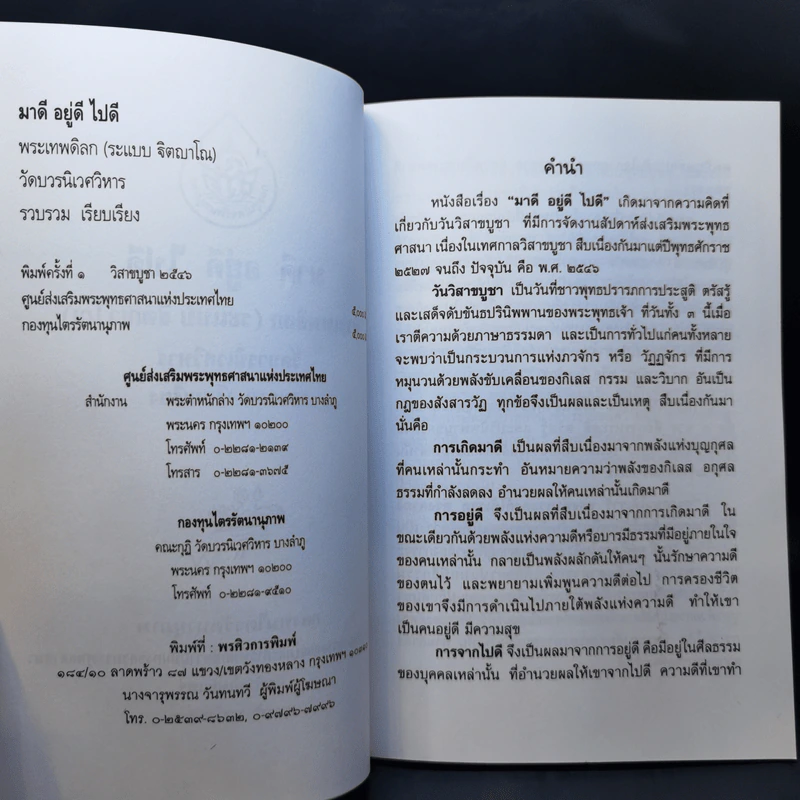 มาดี อยู่ดี ไปดี
พระเทพดิลก (ระแบบ ฐิตญาโณ)
วัดบวรนิเวศวิหาร
รวบรวม เรียบเรียง
พิมพ์ครั้งที่ ๑ วิสาขบูชา ๒๕๔๖
ศูนย์ส่งเสริมพระพุทธศาสนาแห่งประเทศไทย ๕,๐๐๐
กองทุนไตรรัตนานุภาพ ๕,๐๐๐
ศูนย์ส่งเสริมพระพุทธศาสนาแห่งประเทศไทย
สำนักงาน พระตำหนักล่าง วัดบวรนิเวศวิหาร บางลำภู
พระนคร กรุงเทพฯ ๑๐๒๐๐
โทรศัพท์ ๐-๒๒๘๑-๒๑๓๙
โทรสาร ๐-๒๒๘๑-๓๖๗๕
กองทุนไตรรัตนานุภาพ
คณะกุฏิ วัดบวรนิเวศวิหาร บางลำภู
พระนคร กรุงเทพฯ ๑๐๒๐๐
โทรศัพท์ ๐-๒๒๘๑-๙๕๑๐
พิมพ์ที่ : พรศิวการพิมพ์
๑๘๔/๑๐ ลาดพร้าว ๘๗ แขวง/เขตวังทองหลาง กรุงเทพฯ
นางจารุพรรณ วันทนทวี ผู้พิมพ์ผู้โฆษณา
โทร. ๐-๒๕๓๙-๘๖๓๒, ๐-๙๗๙๖-๗๙๙๖
คำนำ
หนังสือเรื่อง "มาดี อยู่ดี ไปดี" เกิดมาจากความคิดที่
เกี่ยวกับวันวิสาขบูชา ที่มีการจัดงานสัปดาห์ส่งเสริมพระพุทธ
ศาสนา เนื่องในเทศกาลวิสาขบูชา สืบเนื่องกันมาแต่ปีพุทธศักราช
๒๕๒๗ จนถึง ปัจจุบัน คือ พ.ศ. ๒๕๔๖
วันวิสาขบูชา เป็นวันที่ชาวพุทธปรารภการประสูติ ตรัสรู้
และเสด็จดับขันธปรินิพพานของพระพุทธเจ้า ที่วันทั้ง ๓ นี้เมื่อ
เราตีความด้วยภาษาธรรมดา และเป็นการทั่วไปแก่คนทั้งหลาย
จะพบว่าเป็นกระบวนการแห่งภวจักร หรือ วัฏฏจักร ที่มีการ
หมุนวนด้วยพลังขับเคลื่อนของกิเลส กรรม และวิบาก อันเป็น
กฎของสังสารวัฏ ทุกข้อจึงเป็นผลและเป็นเหตุ สืบเนื่องกันมา
นั่นคือ
การเกิดมาดี เป็นผลที่สืบเนื่องมาจากพลังแห่งบุญกุศล
ที่คนเหล่านั้นกระทำ อันหมายความว่าพลังของกิเลส อกุศล
ธรรมที่กำลังลดลง อำนวยผลให้คนเหล่านั้นเกิดมาดี
การอยู่ดี จึงเป็นผลที่สืบเนื่องมาจากการเกิดมาดี ใน
ขณะเดียวกันด้วยพลังแห่งความดีหรือบารมีธรรมที่มีอยู่ภายในใจ
ของคนเหล่านั้น กลายเป็นพลังผลักดันให้คนๆ นั้นรักษาความดี
ของตนไว้ และพยายามเพิ่มพูนความดีต่อไป การครองชีวิต
ของเขาจึงมีการดำเนินไปภายใต้พลังแห่งความดี ทำให้เขา
เป็นคนอยู่ดี มีความสุข
การจากไปดี จึงเป็นผลมาจากการอยู่ดี คือมีอยู่ในศีลธรรม
ของบุคคลเหล่านั้น ที่อำนวยผลให้เขาจากไปดี ความดีที่เขาทำ